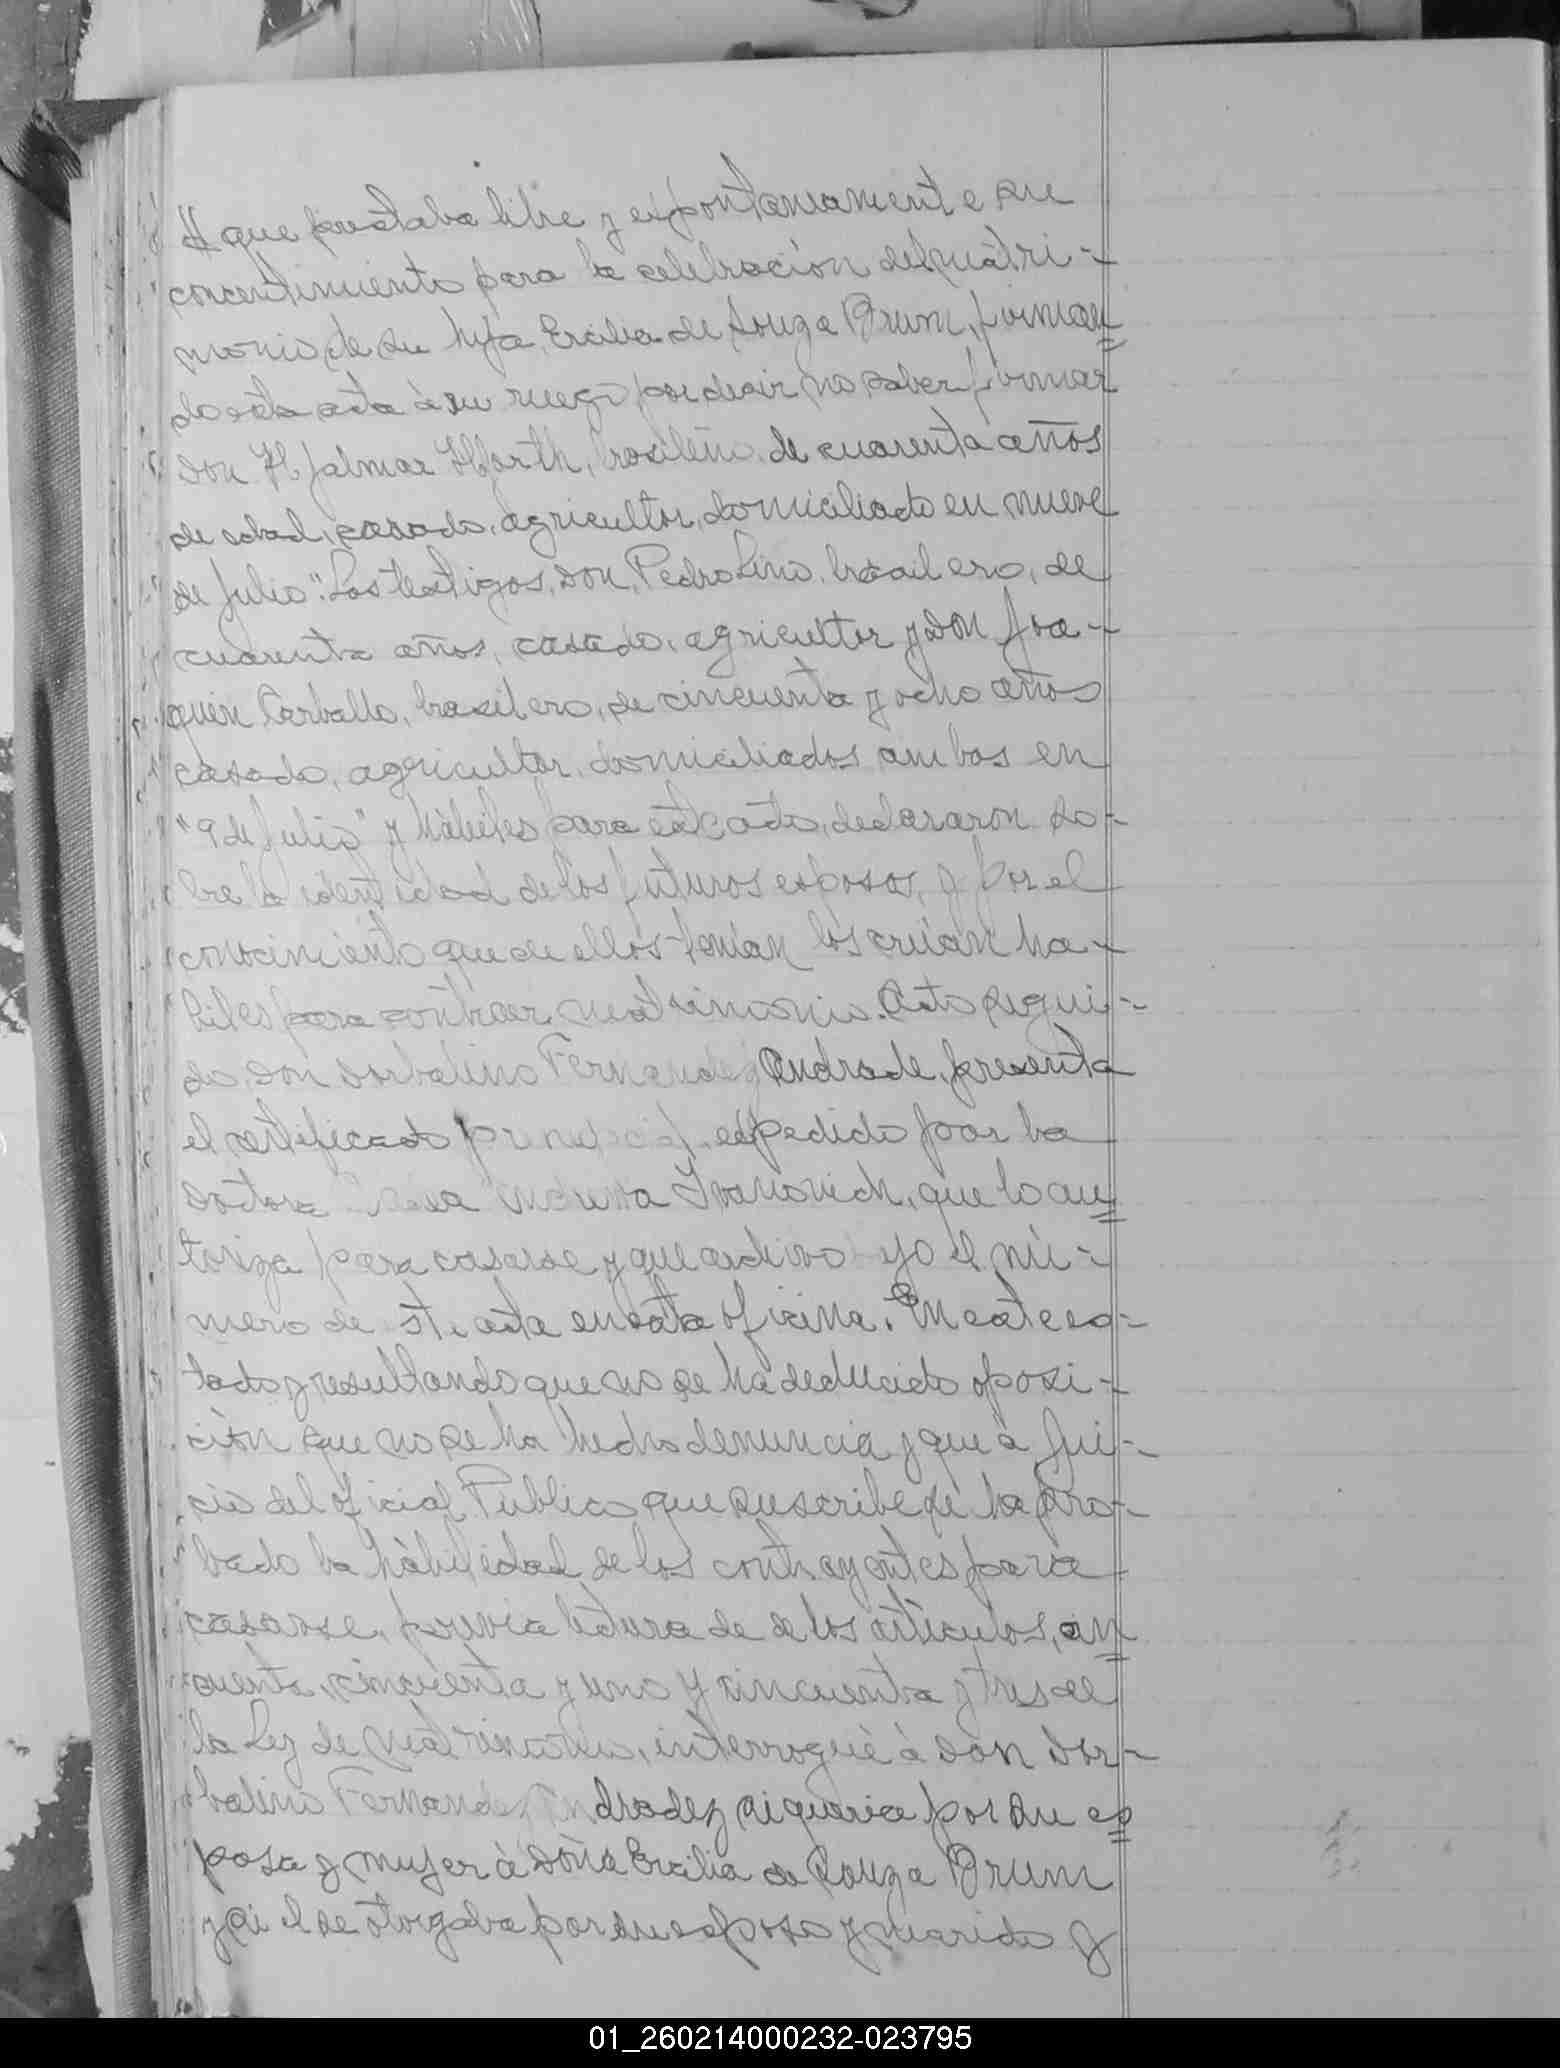 que prestaba libre y espontaneamente su
concentimiento para la celebración del matri-
monio de su hija, Ercilia de Souza Brum, firman
do esta acta à su ruego por decir no saber firmar
don Hjalmar Hforth, brasileño, de cuarenta años
de edad, casado, agricultor, domiciliado en nueve
de Julio". Los testigos, don, Pedro Lino, brasilero, de
cuarenta años, casado, agricultor y don Joa-
quin Carballo, brasilero, de cincuenta y ocho años
casado, agricultor, domiciliados ambos en
"9 de Julio" y hàbiles para este acto, declararon so-
bre la identidad de los futuros esposos, y por el
conocimiento que de ellos tenian los creian ha-
biles para contraer matrimonio. Acto segui-
do, don Dorbalino Fernandez Andrade, presenta
el certificado prenupcial, expedido por la
doctora Ivanovich, que lo au
toriza para casarse y que archivo yo el nù-
mero de acta en esta oficina. En este es-
tado y resultando que no se ha deducido oposi-
ciòn que no se ha hecho denuncia y que à jui-
cio del oficial Pùblico que suscribe se ha pro-
bado la hàbilidad de los contrayentes para
casarse, previa letura de de los artìculos, cin
cuenta, cincuenta y uno y cincuenta y tres de
la Ley de Matrimonio, interroguè à don Dor-
balino Fernandez Andradez si queria por su es
posa y mujer à doña Ercilia de Souza Brum
y si el se otorgaba por su esposo y marido y
01_260214000232-023795